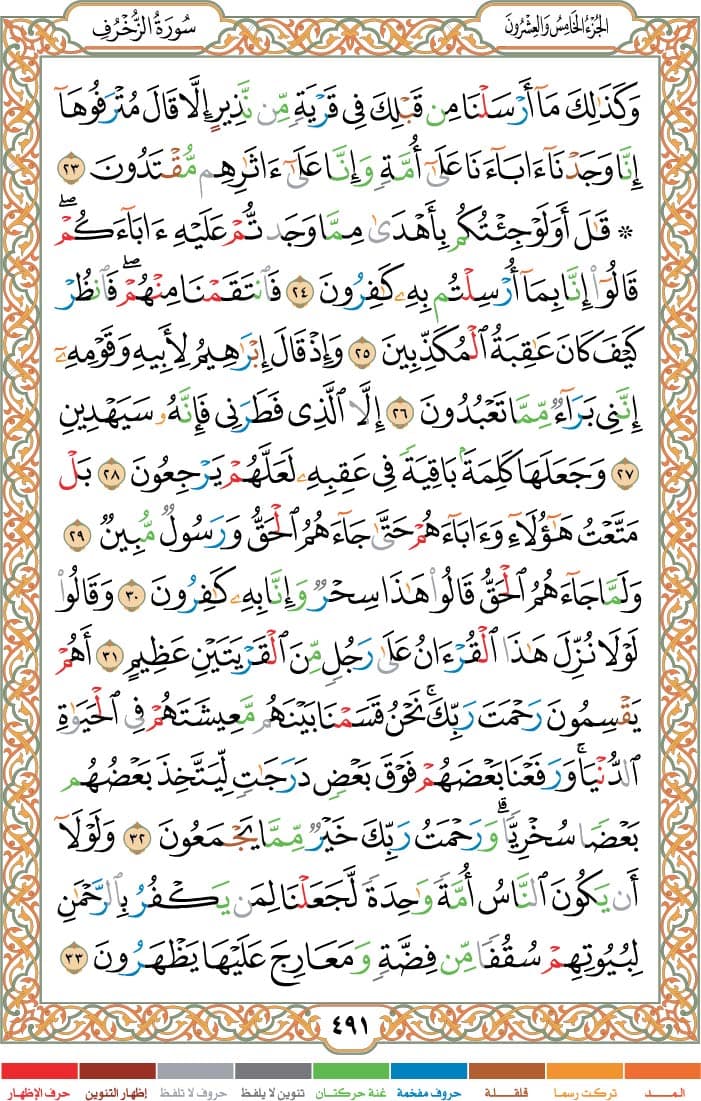 الجزء الخامس والعشرون
سورة الزخرف
وَكَذَٰلِكَ مَآ أَرْسَلْنَا مِن قَبْلِكَ فِى قَرْيَةٍ مِّن نَّذِيرٍ إِلَّا قَالَ مُتْرَفُوهَآ
إِنَّا وَجَدْنَآ ءَابَآءَنَا عَلَىٰٓ أُمَّةٍ وَإِنَّا عَلَىٰٓ ءَاثَٰرِهِم مُّقْتَدُونَ ٢٣
۞ قَٰلَ أَوَلَوْ جِئْتُكُم بِأَهْدَىٰ مِمَّا وَجَدتُّمْ عَلَيْهِ ءَابَآءَكُمْ ۖ
قَالُوٓا۟ إِنَّا بِمَآ أُرْسِلْتُم بِهِۦ كَٰفِرُونَ ٢٤ فَٱنتَقَمْنَا مِنْهُمْ ۖ فَٱنظُرْ
كَيْفَ كَانَ عَٰقِبَةُ ٱلْمُكَذِّبِينَ ٢٥ وَإِذْ قَالَ إِبْرَٰهِيمُ لِأَبِيهِ وَقَوْمِهِۦٓ
إِنَّنِى بَرَآءٌ مِّمَّا تَعْبُدُونَ ٢٦ إِلَّا ٱلَّذِى فَطَرَنِى فَإِنَّهُۥ سَيَهْدِينِ
٢٧ وَجَعَلَهَا كَلِمَةًۢ بَاقِيَةً فِى عَقِبِهِۦ لَعَلَّهُمْ يَرْجِعُونَ ٢٨ بَلْ
مَتَّعْتُ هَٰٓؤُلَآءِ وَءَابَآءَهُمْ حَتَّىٰ جَآءَهُمُ ٱلْحَقُّ وَرَسُولٌ مُّبِينٌ ٢٩
وَلَمَّا جَآءَهُمُ ٱلْحَقُّ قَالُوا۟ هَٰذَا سِحْرٌ وَإِنَّا بِهِۦ كَٰفِرُونَ ٣٠ وَقَالُوا۟
لَوْلَا نُزِّلَ هَٰذَا ٱلْقُرْءَانُ عَلَىٰ رَجُلٍ مِّنَ ٱلْقَرْيَتَيْنِ عَظِيمٍ ٣١ أَهُمْ
يَقْسِمُونَ رَحْمَتَ رَبِّكَ ۚ نَحْنُ قَسَمْنَا بَيْنَهُم مَّعِيشَتَهُمْ فِى ٱلْحَيَوٰةِ
ٱلدُّنْيَا ۚ وَرَفَعْنَا بَعْضَهُمْ فَوْقَ بَعْضٍ دَرَجَٰتٍ لِّيَتَّخِذَ بَعْضُهُم
بَعْضًا سُخْرِيًّا ۗ وَرَحْمَتُ رَبِّكَ خَيْرٌ مِّمَّا يَجْمَعُونَ ٣٢ وَلَوْلَآ
أَن يَكُونَ ٱلنَّاسُ أُمَّةً وَٰحِدَةً لَّجَعَلْنَا لِمَن يَكْفُرُ بِٱلرَّحْمَٰنِ
لِبُيُوتِهِمْ سُقُفًا مِّن فِضَّةٍ وَمَعَارِجَ عَلَيْهَا يَظْهَرُونَ ٣٣
٤٩١
المــــد تركت رسما قلقـــلة حروف مفخمة غنة حركتـان تنوين لا يلفظ حروف لا تلفظ إظهار التنوين حرف الإظهار